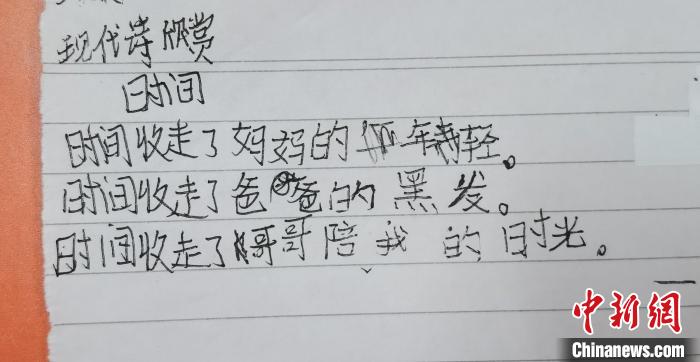 现代诗欣赏
时间
时间收走了妈妈的年轻。
时间收走了爸爸的黑发。
时间收走了哥哥陪我的时光。
中新網
Chinanews.com